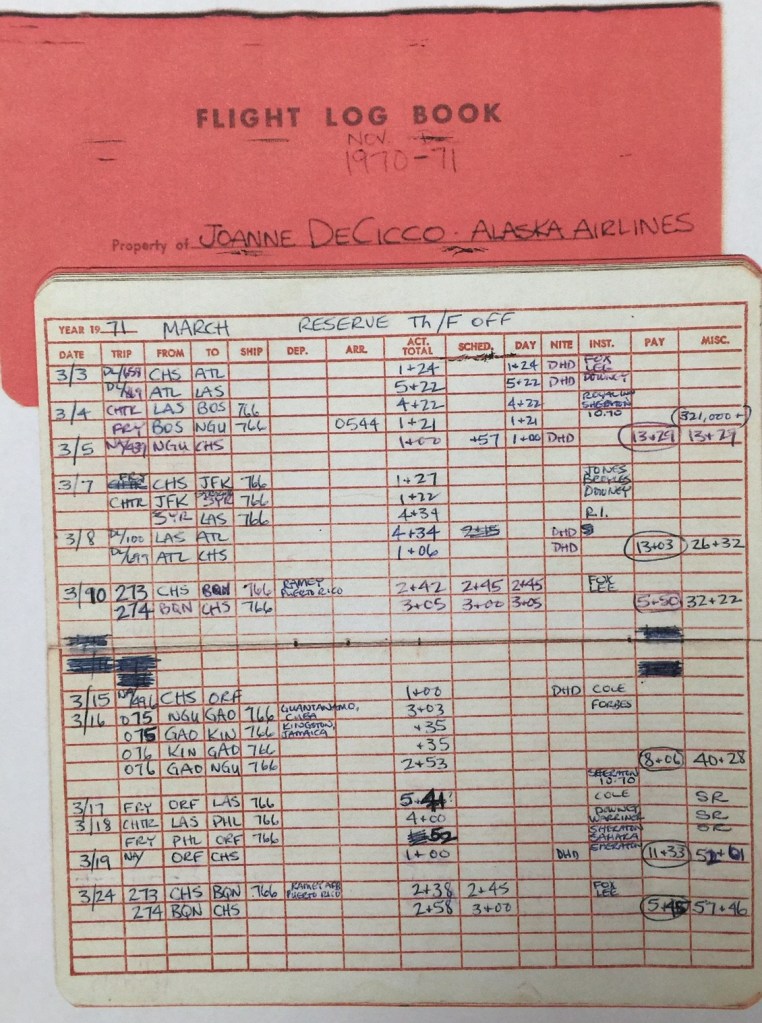 FLIGHT LOG BOOK
NOV.
1970-71
Property of JOANNE DECICCO · ALASKA AIRLINES
YEAR 19 71 MARCH RESERVE Th/F OFF
DATE TRIP FROM TO SHIP DEP. ARR. ACT. TOTAL SCHED. DAY NITE INST. PAY MISC.
3/3 DL/659 CHS ATL 1+24 1+24 DHD FOX LEE
ATL LAS 5+22 5+22 DHD DOWNEY
3/4 CHTR LAS BOS 766 4+22 4+22 SHERATON 10.70
FRY BOS NGU 766 0544 1+21 1+21 321,000+
3/5 NGU CHS 1+00 +57 1+00 DHD 13+29 13+29
3/7 FRY CHS JFK 766 1+27 JONES
CHTR JFK SYR 766 1+22 DOWNEY
SYR LAS 766 4+34 R.I.
3/8 DL/100 LAS ATL 4+34 2+15 DHD
ATL CHS 1+06 DHD 13+03 26+32
3/10 273 CHS BQN 766 RAMEY PUERTO RICO 2+42 2+45 2+45 FOX LEE
274 BQN CHS 766 3+05 3+00 3+05 5+50 32+22
3/15 NA/496 CHS ORF 1+00 DHD COLE
3/16 075 NGU GAO 766 GUANTANAMO, CUBA 3+03 FORBES
075 GAO KIN 766 KINGSTON, JAMAICA +35
076 KIN GAO 766 +35
076 GAO NGU 766 2+53 8+06 40+28
SHERATON 10.70
3/17 FRY ORF LAS 766 5+41 COLE SR
3/18 CHTR LAS PHL 766 4+00 DOWNEY SR
FRY PHL ORF 766 52 SHERATON SAHARA SR
3/19 NA/ ORF CHS 1+00 DHD SHERATON 11+33 52+01
3/24 273 CHS BQN 766 RAMEY AFB PUERTO RICO 2+38 2+45 FOX LEE
274 BQN CHS 2+58 3+00 5+45 57+46